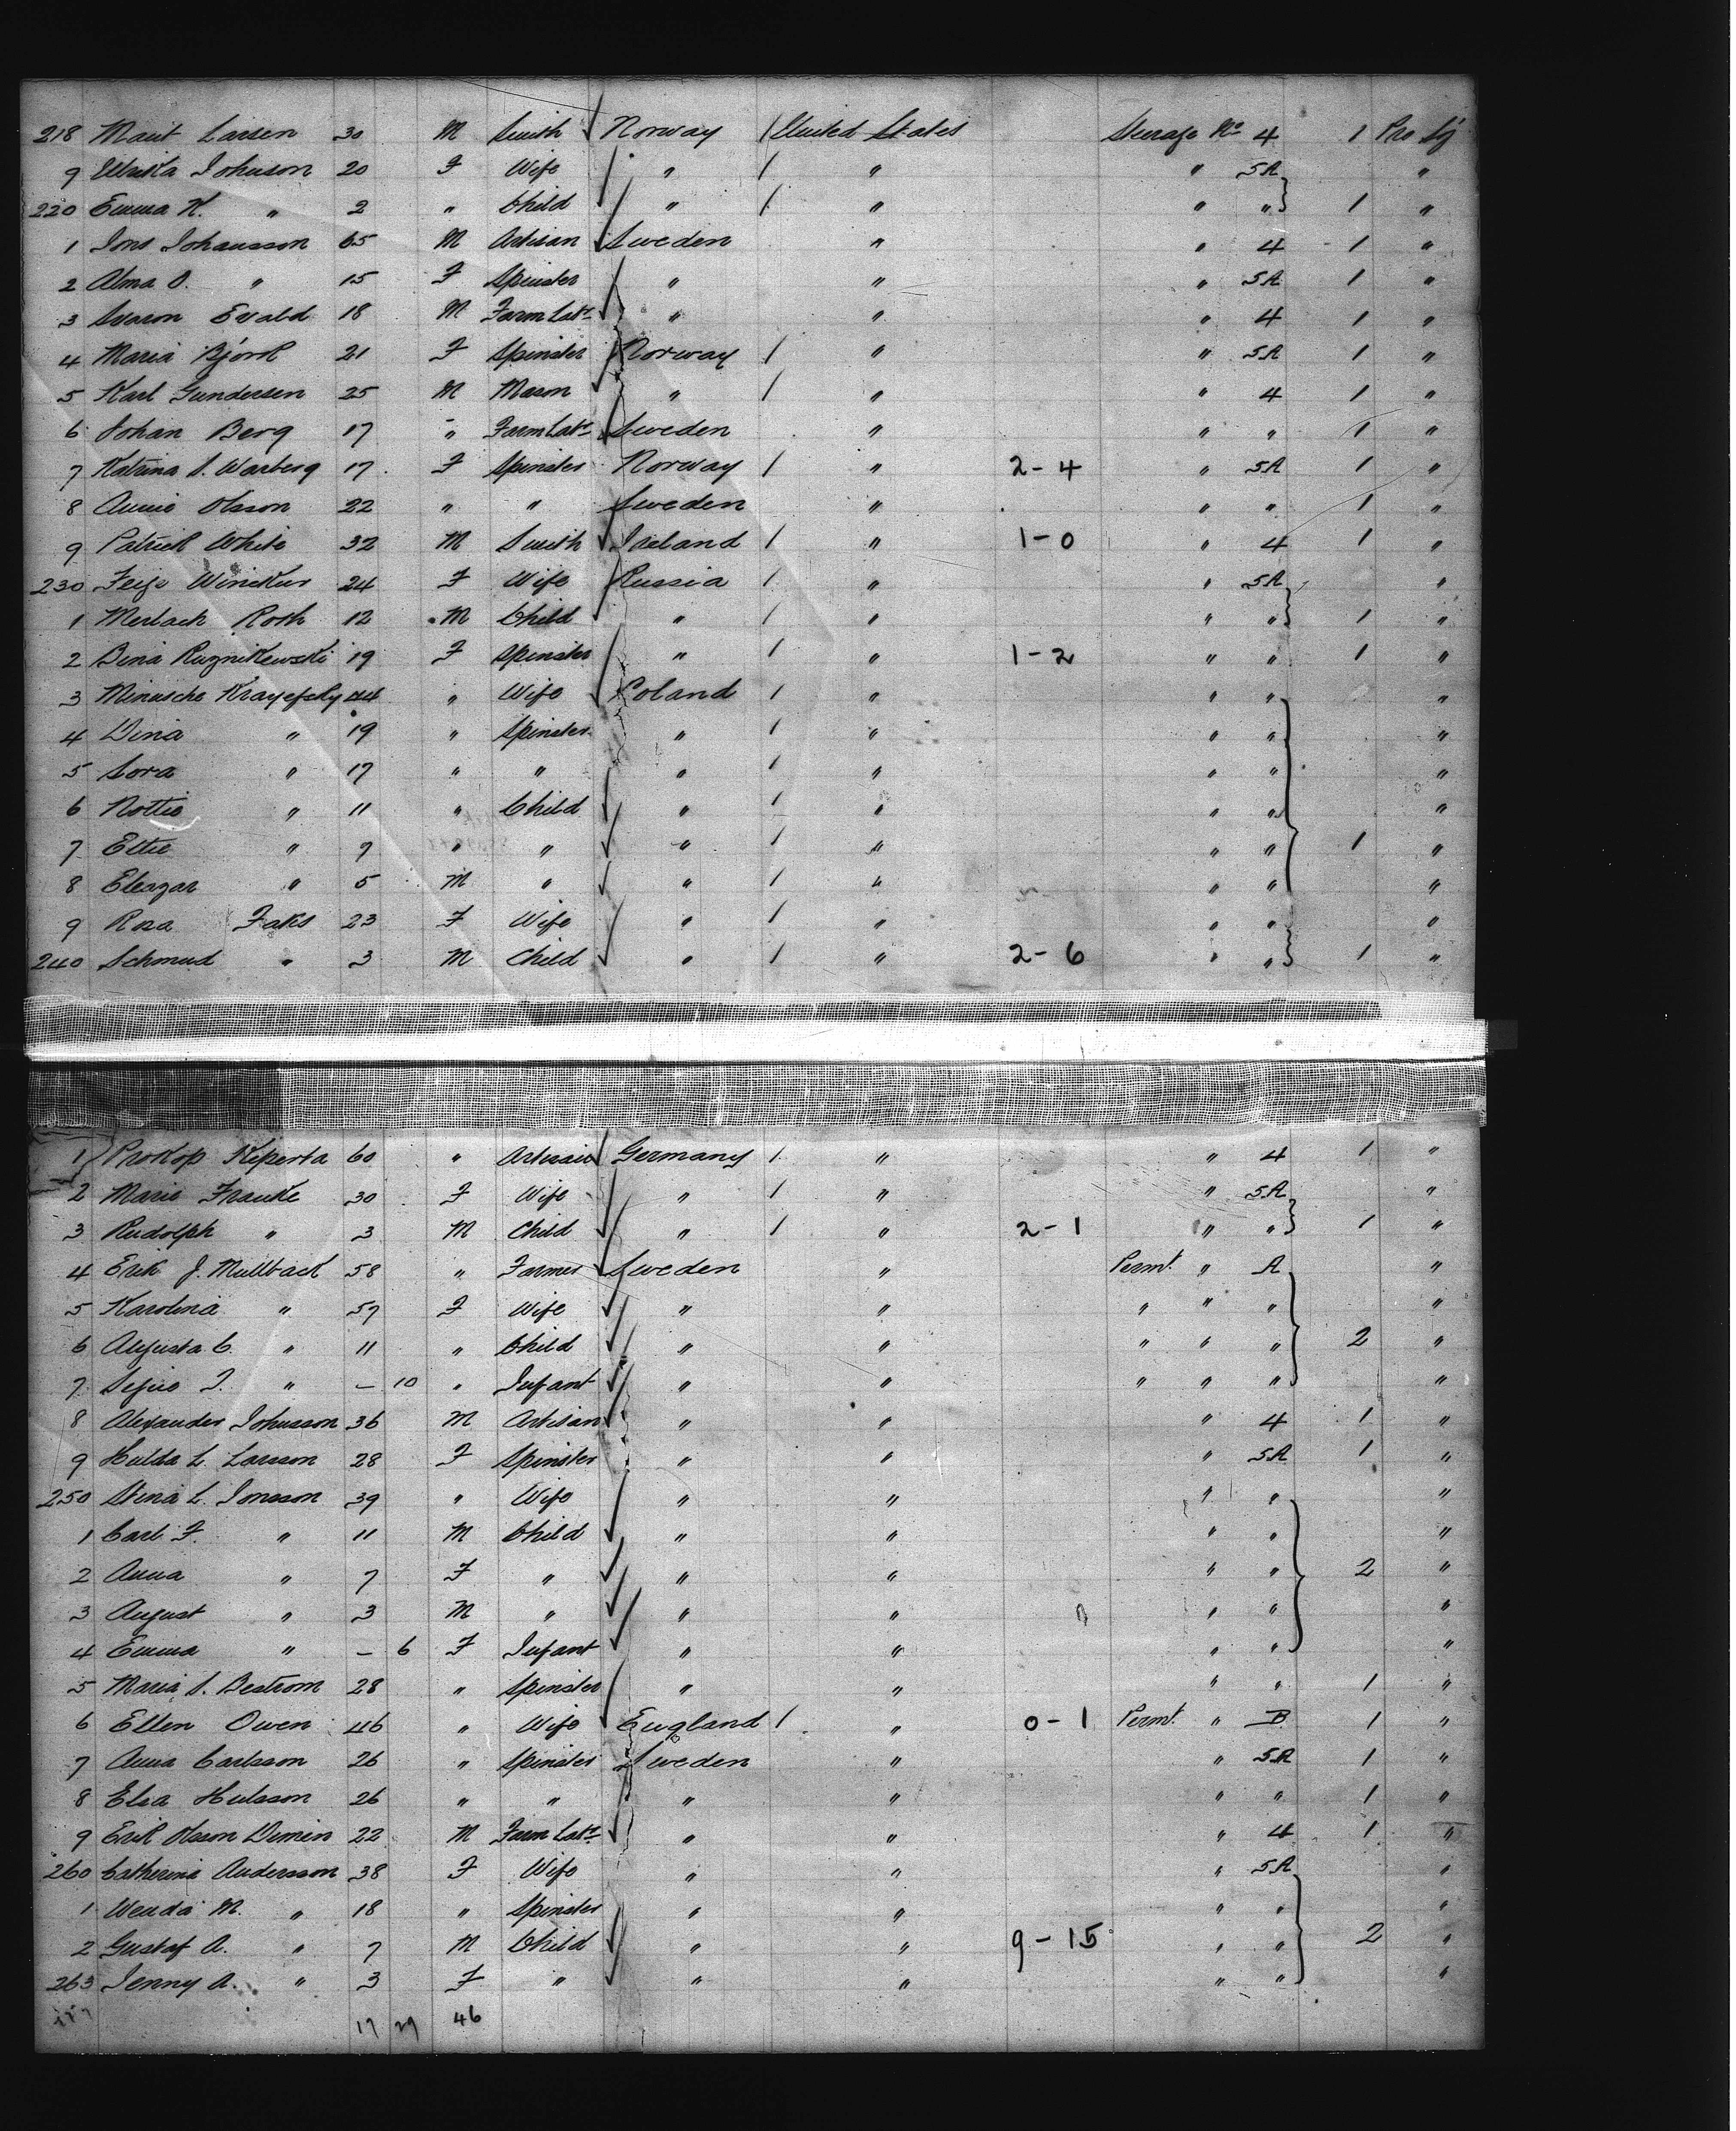 218 Mauit Larsen 30 M Smith Norway 1 United States Steerage No 4 1 Pro Sj
9 Johnson 20 F Wife " 1 " " 5A "
220 Emma K. " 2 " Child " 1 " " " 1 "
1 Jons Johansson 65 M Artisan Sweden " " 4 1 "
2 Alma O. " 15 F Spinster " " " 5A 1 "
3 Svaron Evald 18 M Farm Labr " " " 4 1 "
4 Maria Björk 21 F Spinster Norway 1 " " 5A 1 "
5 Karl Gundersen 25 M Mason " 1 " " 4 1 "
6 Johan Berg 17 " Farm Labr Sweden " " " 1 "
7 Katrina S. Warberg 17 F Spinster Norway 1 " 2-4 " 5A 1 "
8 Annie Olsson 22 " " Sweden " " " 1 "
9 Patrick White 32 M Smith Ireland 1 " 1-0 " 4 1 "
230 Feige Winckus 24 F Wife Russia 1 " " 5A "
1 Merlach Roth 12 M Child " 1 " " " 1 "
2 Dina Ruznikewski 19 F Spinster " 1 " 1-2 " " 1 "
3 Minusche Krayefsky 44 " Wife Poland 1 " " " "
4 Dina " 19 " Spinster " 1 " " " "
5 Sora " 17 " " " 1 " " " "
6 Nottie " 11 " Child " 1 " " " "
7 Ettie " 7 " " " 1 " " " 1 "
8 Eleazar " 5 M " " 1 " " " "
9 Rosa Faks 23 F Wife " 1 " " " "
240 Schmud " 3 M Child " 1 " 2-6 " " 1 "
1 Prokop Keperta 60 " Artisan Germany 1 " " 4 1 "
2 Marie Franke 30 F Wife " 1 " " 5A "
3 Rudolph " 3 M Child " 1 " 2-1 " " 1 "
4 Erik J. Mullback 58 " Farmer Sweden " Permt. " A "
5 Karolina " 57 F Wife " " " " " "
6 Augusta C. " 11 " Child " " " " " 2 "
7 Signe J. " — 10 " Infant " " " " " "
8 Alexander Johnsson 36 M Artisan " " " 4 1 "
9 Hulda L. Larsson 28 F Spinster " " " 5A 1 "
250 Stina L. Jonsson 39 " Wife " " " " "
1 Carl F. " 11 M Child " " " " "
2 Anna " 7 F " " " " " 2 "
3 August " 3 M " " " " " "
4 Emma " — 6 F Infant " " " " "
5 Maria S. Bestrom 28 " Spinster " " " " 1 "
6 Ellen Owen 46 " Wife England 1 " 0-1 Permt. " B 1 "
7 Anna Carlsson 26 " Spinster Sweden " " 5A 1 "
8 Elsa Hulsson 26 " " " " " " 1 "
9 Erik Olsson Dimen 22 M Farm Labr " " " 4 1 "
260 Catherina Andersson 38 F Wife " " " 5A "
1 Wenda M. " 18 " Spinster " " " " "
2 Gustaf A. " 7 M Child " " 9-15 " " 2 "
263 Jenny A. " 3 F " " " " " "
17 29 46